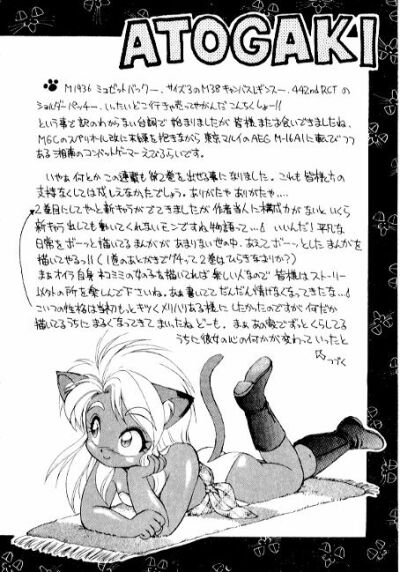 ATOGAKI
M1936 ミュゼットバッグー、サイズ3のM38キャンバスレギンスー、442nd RCT の
ショルダーパッチー、いったいどこ行きゃ売ってやがんだこんちくしょー!!
という事で訳のわからない台詞で始まりましたが皆様また会いできましたね、
MGCのスーパーホールド改に未練を抱きながら東京マルイのAEG M-16A1に転びつつ
ある湘南のコンバットゲーマーえびふらいです。
いやぁ何とかこの連載も第2巻を出せる事になりました。これも皆様方の
支持なくしては成しえなかったでしょう。ありがたや ありがたや…。
2巻目にしてやっと新キャラがでてきましたが作者当人に構成力がないといくら
新キャラ出しても動いてくれないモンですね物語って…! いいんだ!平凡な
日常をボーッと描いてるまんががあまりない世の中、あえてボーッとしたまんがを
描いてやるっ!!(1巻のあとがきでグチって2巻はひらきなおりか?)
まぁオイラ自身ネコミミの女の子を描いてれば楽しい人なので皆様はストーリー
以外の所を楽しんで下さいね。あぁ書いててだんだん情けなくなってきたな…!
こいつの性格は当初もっとキツくメリハリある様にしたかったのですが何だか
描いてるうちにまるくなってきてまいったねどーも。まぁあの家でずっとくらしてる
うちに彼女の心の何かが変わっていったと
つづく